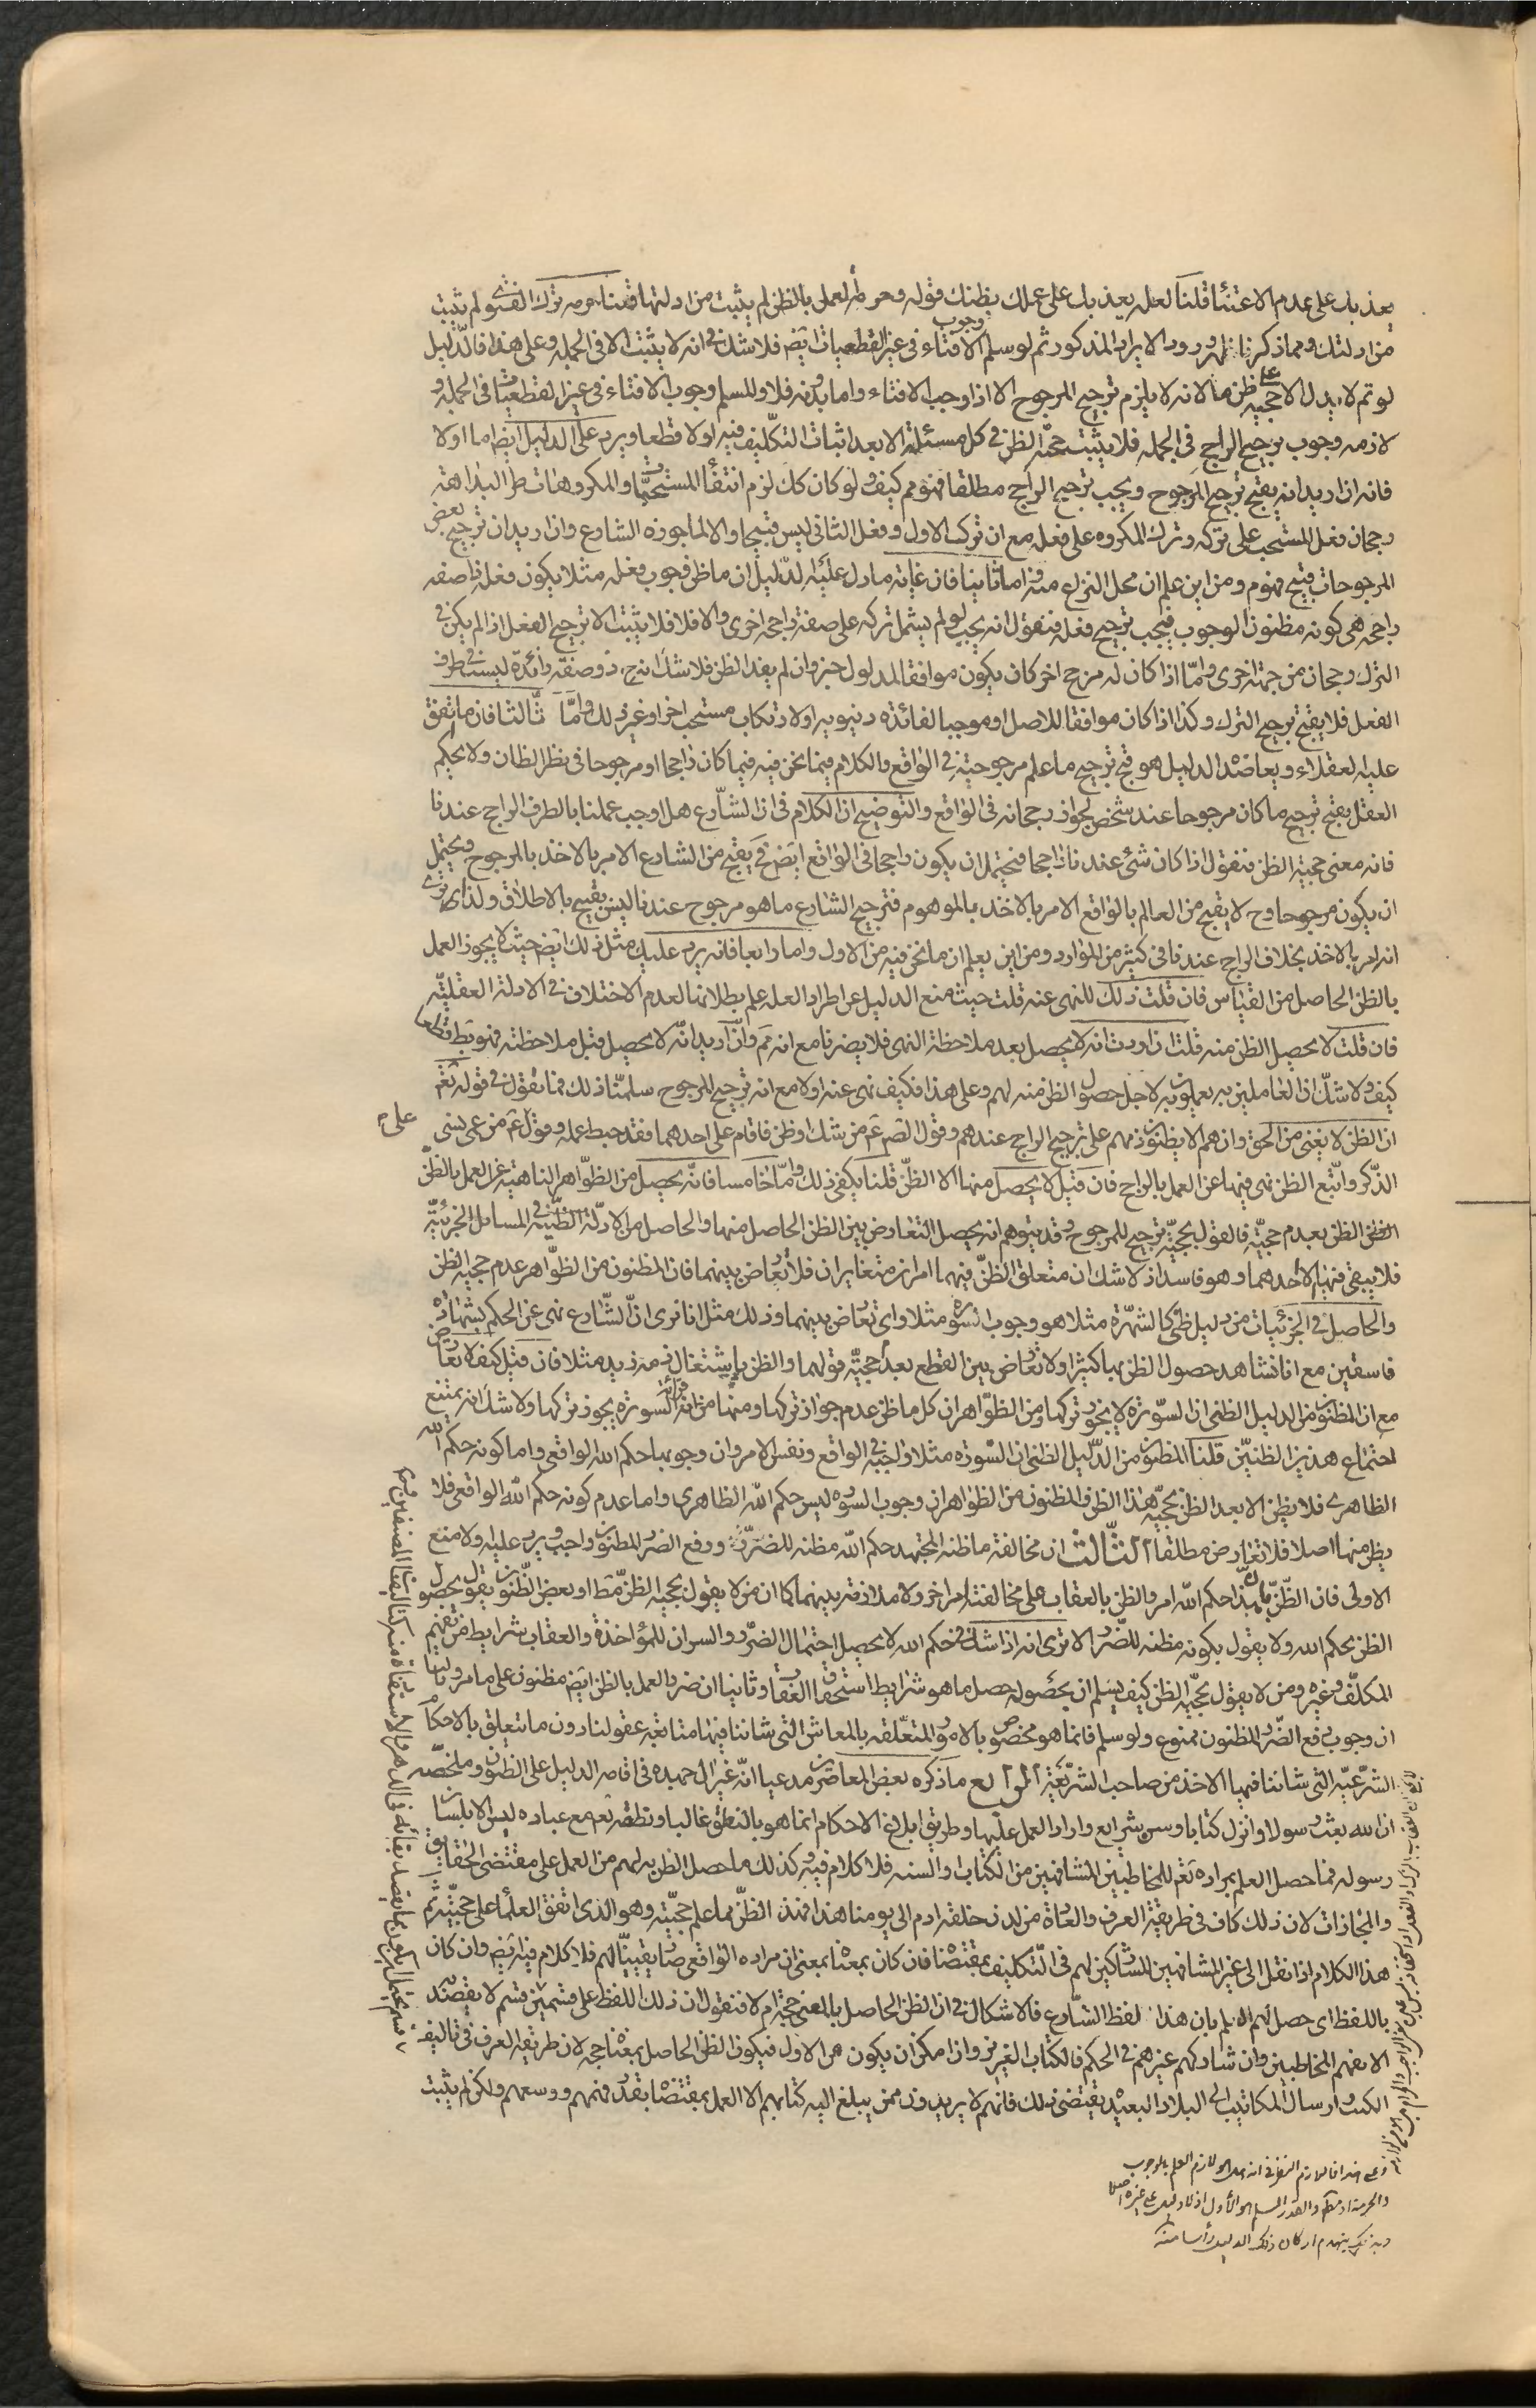 يعذبك على عدم الاعتناء قلنا لعله يعذبك على عملك بظنك قوله وحرمة العمل بالظن لم يثبت من ادلتها قلنا حرمه ترك الفتوى لم يثبت
من ادلتك ومما ذكرنا ظهر ورود الايراد المذكور ثم لو سلم وجوب الافتاء فى غير القطعيات ايضا فلا شك فى انه لا يثبت الا فى الجمله وعلى هذا فالدليل
لو تم لا يدل الا على حجيه ظن ما لانه لا يلزم ترجيح المرجوح الا اذا وجب الافتاء واما بدونه فلا والمسلم وجوب الافتاء فى غير القطعيات فى الجمله و
لازمه وجوب ترجيح الراجح فى الجمله فلا يثبت حجيه الظن فى كل مسئلة الا بعد اثبات التكليف فيه اولا قطعا ويرد على الدليل ايضا اما اولا
فانه ان اريد انه يقبح ترجيح المرجوح ويجب ترجيح الراجح مطلقا فهو مم كيف ولو كان كك لزم انتفاء المستحبات والمكروهات طرا لبداهة
رجحان فعل المستحب على تركه وترك المكروه على فعله مع ان ترك الاول وفعل الثانى ليس قبيحا والا لما جوزه الشارع وان اريد ان ترجيح بعض
المرجوحات قبيح فهو م ومن اين علم ان محل النزاع منه واما ثانيا فان غاية ما دل عليه الدليل ان ما ظن وجوب فعله مثلا يكون فعله ذا صفه
راجحه هى كونه مظنون الوجوب فيجب ترجيح فعله فنقول انه يجب لو لم يشمل تركه على صفة راجحه اخرى والا فلا فلا يثبت الا ترجيح الفعل اذا لم يكن فى
الترك رجحان من جهة اخرى واما اذا كان له مرجح اخر كان يكون موافقا لمدلول خبر وان لم يفد الظن فلا شك انه ح ذو صفة زائدة ليست فى طرف
الفعل فلا يقبح ترجيح الترك وكذا اذا كان موافقا للاصل او موجبا لفائده دنيويه او لارتكاب مستحب اخر او غير ذلك واما ثالثا فان ما يتفق
عليه العقلاء ويعاضده الدليل هو قبح ترجيح ما علم مرجوحيته فى الواقع والكلام فيما نحن فيه فيما كان راجحا او مرجوحا فى نظر الظان ولا يحكم
العقل بقبح ترجيح ما كان مرجوحا عند شخص لجواز رجحانه فى الواقع والتوضيح ان الكلام فى ان الشارع هل اوجب عملنا بالطرف الراجح عندنا
فانه معنى حجية الظن فنقول اذا كان شئ عندنا راجحا فيحتمل ان يكون راجحا فى الواقع ايضا فح يقبح من الشارع الامر بالاخذ بالمرجوح ويحتمل
ان يكون مرجوحا وح لا يقبح من العالم بالواقع الامر بالاخذ بالموهوم فترجيح الشارع ما هو مرجوح عندنا ليس بقبيح بالاطلاق ولذا نرى
انه امر بالاخذ بخلاف الراجح عندنا فى كثير من الموارد ومن اين يعلم ان ما نحن فيه من الاول واما رابعا فانه يرد عليك مثل ذلك ايضا حيث لا يجوز العمل
بالظن الحاصل من القياس فان قلت ذلك للنهى عنه قلت حيث منع الدليل عن اطراد العله علم بطلانها لعدم الاختلاف فى الادلة العقليه
فان قلت لا يحصل الظن منه قلت ان اردت انه لا يحصل بعد ملاحظة النهى فلا يضرنا مع انه مم وان اريد انه لا يحصل قبل ملاحظته فهو بط قطعا
كيف ولا شك ان العاملين به يعملون به لاجل حصول الظن منه لهم وعلى هذا فكيف نهى عنه اولا مع انه ترجيح المرجوح سلمنا ذلك فما تقول فى قوله تعم
ان الظن لا يغنى من الحق وان هم الا يظنون ذمهم على ترجيح الراجح عندهم وقول الصم عم من شك او ظن فاقام على احدهما فقد حبط عمله وقول عم من عمى نسى
الذكر واتبع الظن نهى فيها عن العمل بالراجح فان قيل لا يحصل منها الا الظن قلنا يكفى ذلك واما خامسا فانه يحصل من الظواهر الناهية عن العمل بالظن
الظن بعدم حجيته فالقول بحجيته ترجيح للمرجوح وقد يتوهم انه يحصل التعارض بين الظن الحاصل منها والحاصل من الادلة الظنيه فى المسائل الجزئيه
فلا يبقى فيها الا احدهما وهو فاسد اذ لا شك ان متعلق الظن فيهما امران متغايران فلا تعارض بينهما فان المظنون من الظواهر عدم حجيه الظن
والحاصل فى الجزئيات من دليل ظنى كالشهرة مثلا هو وجوب السوره مثلا واى تعارض بينهما وذلك مثل انا نرى ان الشارع نهى عن الحكم بشهادة
فاسقين مع انا نشاهد حصول الظن بها كثيرا ولا تعارض بين القطع بعدم حجية قولهما والظن باشتغال ذمه زيد مثلا فان قيل كيف لا تعارض
مع ان المظنون من الدليل الظنى ان السورة لا يجوز تركها ومن الظواهر ان كل ما ظن عدم جواز تركها ومنها قرائة السورة يجوز تركها ولا شك انه يمتنع
اجتماع هذين الظنين قلنا المظنون من الدليل الظنى ان السوره مثلا واجبه فى الواقع ونفس الامر وان وجوبها حكم الله الواقعى واما كونه حكم الله
الظاهرى فلا يظن الا بعد الظن بحجيه هذا الظن والمظنون من الظواهر ان وجوب السوره ليس حكم الله الظاهرى واما عدم كونه حكم الله الواقعى فلا
يظن منها اصلا فلا تعارض مطلقا الثالث ان مخالفة ما ظنه المجتهد حكم الله مظنه للضرر ودفع الضرر المظنون واجب ويرد عليه اولا منع
الاولى فان الظن بان هذا حكم الله امر والظن بالعقاب على مخالفته امر اخر ولا ملازمة بينهما كما ان من لا يقول بحجيه الظن مط او بعض الظنون يقول بحصول
الظن بحكم الله ولا يقول بكونه مظنه للضرر الا ترى انه اذا شك فى حكم الله لا يحصل احتمال الضرر والسر ان للمؤاخذة والعقاب شرايط من تفهيم
المكلف وغيره ومن لا يقول بحجيه الظن كيف يسلم ان بحصوله حصل ما هو شرايط استحقاق العقاب وثانيا ان ضرر العمل بالظن ايضا مظنون على ما مر وثالثا
ان وجوب دفع الضرر المظنون ممنوع ولو سلم فانما هو مخصوص بالامور المتعلقه بالمعاش التى شاننا فيها متابعة عقولنا دون ما يتعلق بالاحكام
الشرعيه التى شاننا فيها الاخذ من صاحب الشريعة الرابع ما ذكره بعض المعاصرين مدعيا انه غير ال حميده فى اقامه الدليل على الظنون وملخصه
ان الله بعث رسولا وانزل كتابا وسن شرايع واراد العمل عليها وطريق ابلاغ الاحكام انما هو بالنطق غالبا ونطقه تعم مع عباده ليس الا بلسان
رسوله فما حصل العلم بمراده تعم للمخاطبين المشافهين من الكتاب والسنه فلا كلام فيه وكذلك ما حصل الظن به لهم من العمل على مقتضى الحقايق
والمجازات لان ذلك كان فى طريقة العرف والعادة من لدن خلقه ادم الى يومنا هذا فهذا الظن مما علم حجيته وهو الذى اتفق العلماء على حجيته ثم
هذا الكلام اذا نقل الى غير المشافهين المشاركين لهم فى التكليف بمقتضاه فان كان بمعناه بمعنى ان مراده الواقعى صار يقينيا لهم فلا كلام فيه ايضا وان كان
باللفظ اى حصل لهم العلم بان هذا لفظ الشارع فالاشكال فى ان الظن الحاصل بالمعنى حجة ام لا فنقول ان ذلك اللفظ على قسمين قسم لا يقصد
الا تفهم المخاطبين وان شاركهم غيرهم فى الحكم فالكتاب العزيز وان امكن ان يكون من الاول فيكون الظن الحاصل بمعناه حجه لان طريقه العرف فى تاليف
الكتب وارسال المكاتيب الى البلاد البعيده يقتضى ذلك فانهم لا يريدون ممن يبلغ اليه كتابهم الا العمل بمقتضاه بقدر فهمهم ووسعهم ولكن لم يثبت